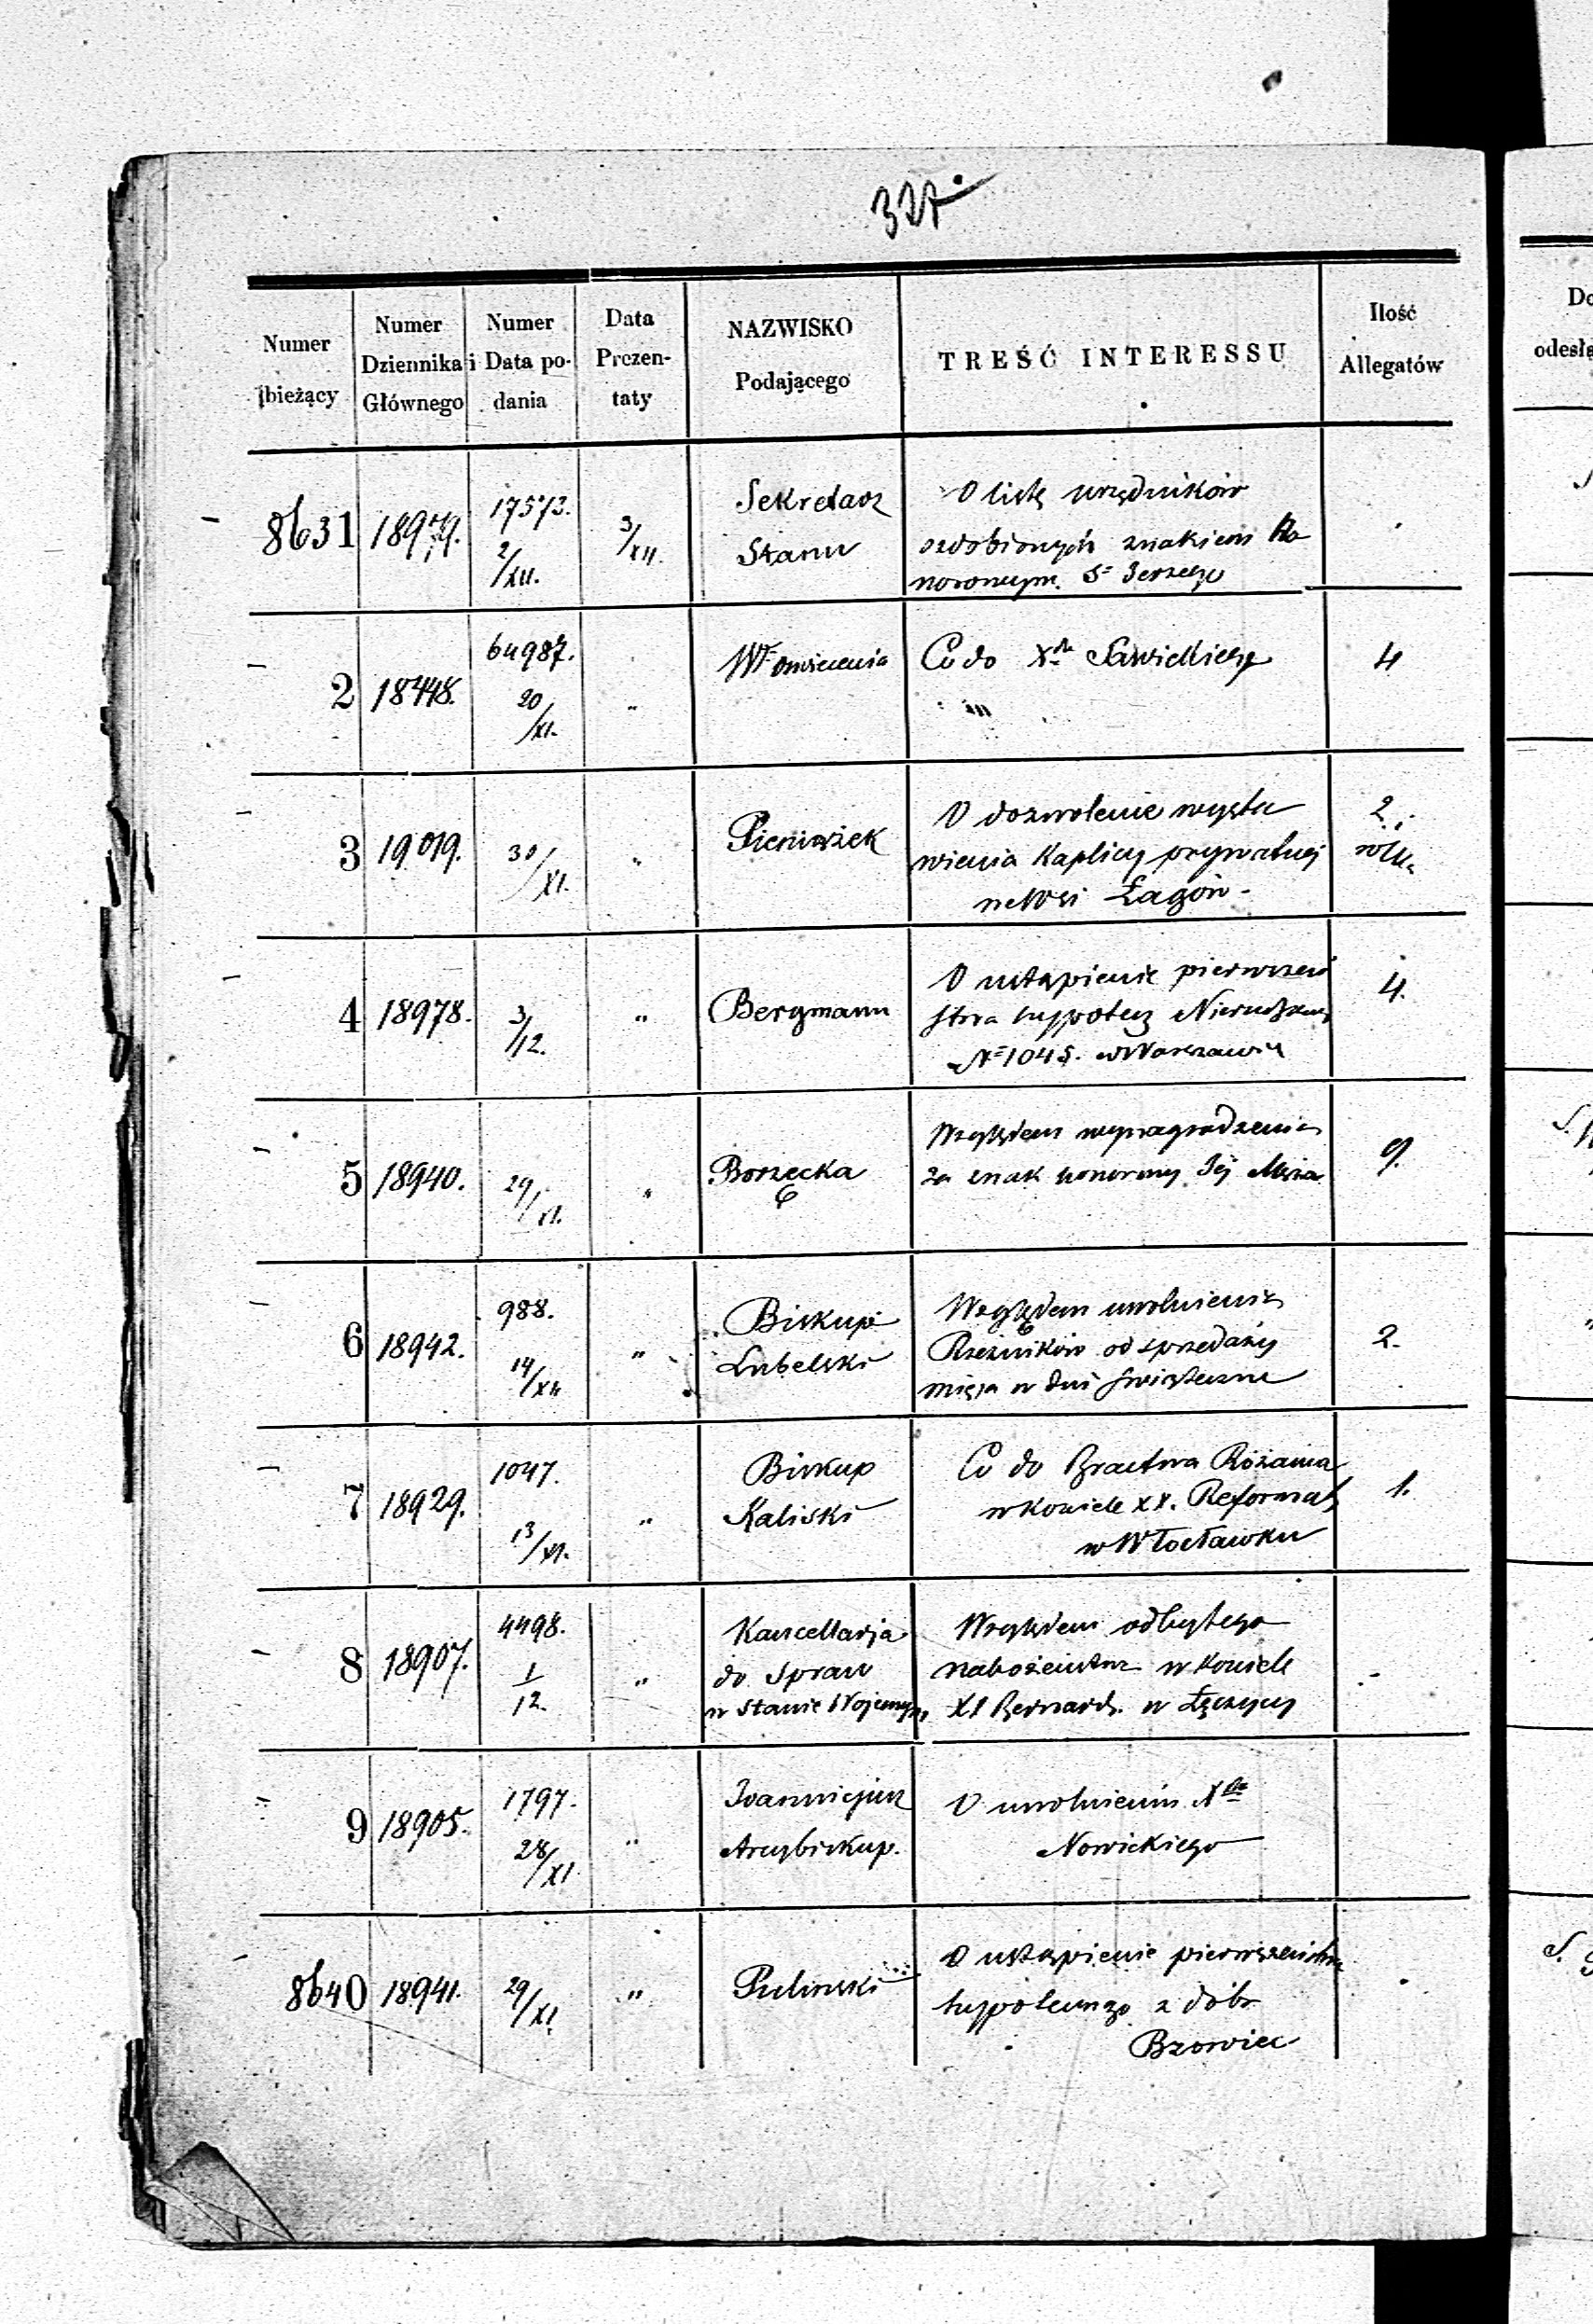 327.
Numer bieżący
Numer Dziennika Głównego
Numer i Data podania
Data Prezentaty
NAZWISKO Podającego
TREŚĆ INTERESSU
Ilość Allegatów
8631 18979. 17573. 2/XII. 3/XII.
Sekretarz
Stanu
O listę urzędników
ozdobionych znakiem Ho
norowym Sgo Jerzego
2 18448. 64987. 20/XI. "
W. Oświecenia
Co do Xdz Sawickiego
4
3 19019. 30/XI. "
Pieniążek
O dozwolenie wysta
wienia Kaplicy prywatnej
we Wsi Łagów
2.
4 18978. 3/12. "
Bergmann
O ustąpienie pierwszeń
stwa hypotecz Nieruchom
No 1045. w Warszawie
4.
5 18940. 29/XI. "
Borzęcka
Względem wynagrodzenia
za znak honorowy Jej Męża
9.
6 18942. 988. 14/XII "
Biskup
Lubelski
Względem uwolnienia
Rzeźników od sprzedaży
mięsa w dni świąteczne
2.
7 18929. 1047. 13/XI. "
Biskup
Kaliski
Co do Bractwa Różańca
w Kościele XX. Reformat
w Włocławku
1.
8 18907. 4498. 1/12. "
Kancellarja
do Spraw
w Stanie Wojennym
Względem odbytego
nabożeństwa w Kościele
XX Bernard. w Łęczycy
9 18905. 1797. 28/XI. "
Joannicjusz
Arcybiskup.
O uwolnienie Xdza
Nowickiego
8640 18941. 29/XI. "
Puliński
O ustąpienie pierwszeństwa
hypotecznego z dóbr
Bzowiec
Do
odesła